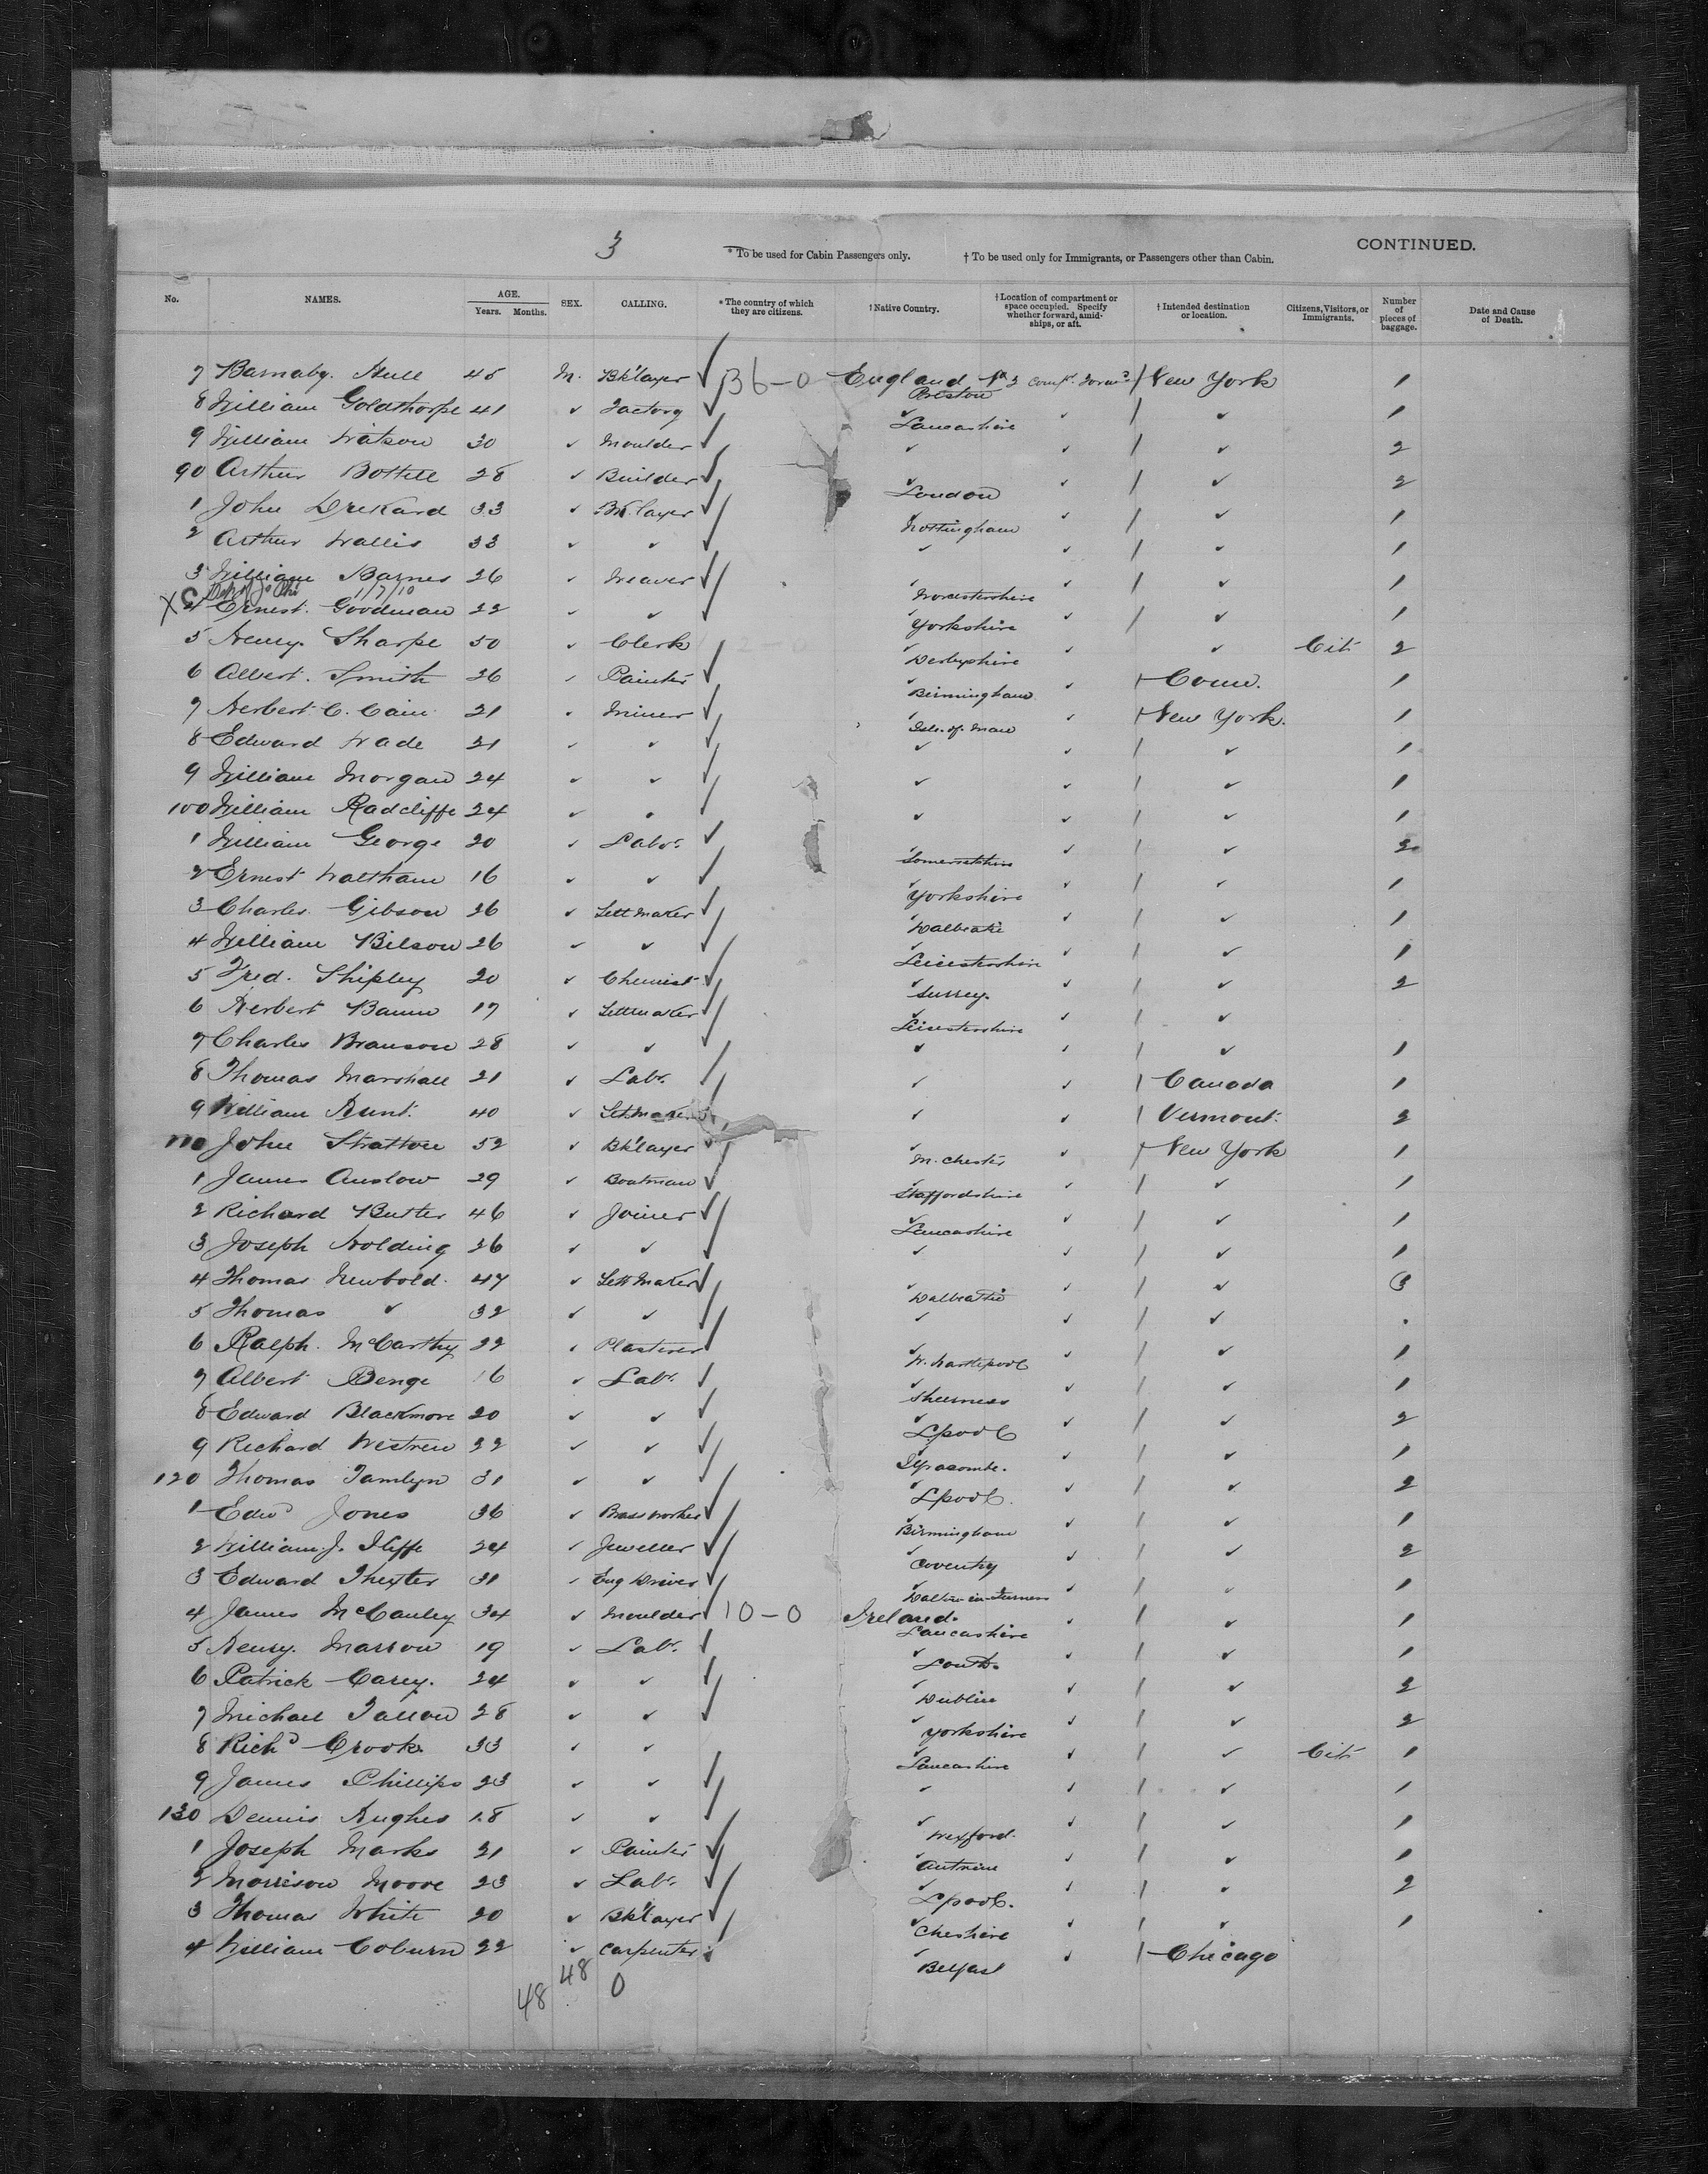 3
* To be used for Cabin Passengers only. † To be used only for Immigrants, or Passengers other than Cabin. CONTINUED.
No. NAMES. AGE. Years. Months. SEX. CALLING. * The country of which they are citizens. † Native Country. † Location of compartment or space occupied. Specify whether forward, amidships, or aft. † Intended destination or location. Citizens, Visitors, or Immigrants. Number of pieces of baggage. Date and Cause of Death.
7 Barnaby Hull 45 M. Bk'layer ✓ 36-0 England Preston New York 1
8 William Goldthorpe 41 ✓ Factory ✓ ✓ Lancashire ✓ / ✓ 1
9 William Watson 30 ✓ Moulder ✓ ✓ ✓ / ✓ 2
90 Arthur Bottell 28 ✓ Builder ✓ ✓ London ✓ / ✓ 2
1 John 33 ✓ Bk.layer ✓ ✓ Nottingham ✓ / ✓ 1
2 Arthur Wallis 33 ✓ ✓ ✓ ✓ ✓ / ✓ 1
3 William Barnes 26 ✓ Weaver ✓ ✓ Worcestershire ✓ / ✓ 1
1/7/10
X C 4 Ernest Goodman 22 ✓ ✓ ✓ ✓ Yorkshire ✓ / ✓ 1
5 Henry Sharpe 50 ✓ Clerk 2-0 ✓ Derbyshire ✓ ✓ Cit 2
6 Albert Smith 26 ✓ Painter ✓ ✓ Birmingham ✓ / Conn. 1
7 Herbert C. Cain 21 ✓ Miner ✓ ✓ Isle of Man ✓ / New York. 1
8 Edward Wade 21 ✓ ✓ ✓ ✓ ✓ / ✓ 1
9 William Morgan 24 ✓ ✓ ✓ ✓ ✓ / ✓ 1
100 William Radcliffe 24 ✓ ✓ ✓ ✓ ✓ / ✓ 1
1 William George 20 ✓ Labr. ✓ ✓ Somersetshire ✓ / ✓ 2
2 Ernest Waltham 16 ✓ ✓ ✓ ✓ Yorkshire ✓ / ✓ 1
3 Charles Gibson 26 ✓ Settmaker ✓ ✓ Dalbeatie ✓ / ✓ 1
4 William Bilson 26 ✓ ✓ ✓ ✓ Leicestershire ✓ / ✓ 1
5 Fred. Shipley 20 ✓ Chemist ✓ ✓ Surrey. ✓ / ✓ 2
6 Herbert Baum 17 ✓ Settmaker ✓ ✓ Leicestershire ✓ / ✓
7 Charles Branson 28 ✓ ✓ ✓ ✓ ✓ / ✓ 1
8 Thomas Marshall 21 ✓ Labr. ✓ ✓ ✓ / Canada 1
9 William Hunt. 40 ✓ Settmaker ✓ ✓ / Vermont. 2
110 John Stratton 52 ✓ Bk'layer ✓ ✓ M.chester ✓ / New York 1
1 James Anslow 29 ✓ Boatman ✓ ✓ Staffordshire ✓ / ✓ 1
2 Richard Butler 46 ✓ Joiner ✓ ✓ Lancashire ✓ / ✓ 1
3 Joseph Holding 26 ✓ ✓ ✓ ✓ ✓ / ✓ 1
4 Thomas Newbold. 47 ✓ Settmaker ✓ ✓ Dalbeatie ✓ / ✓ 3
5 Thomas ✓ 32 ✓ ✓ ✓ ✓ ✓ / ✓
6 Ralph. McCarthy 22 ✓ Plasterer ✓ ✓ W. Hartlepool ✓ / ✓ 1
7 Albert Benge 16 ✓ Labr. ✓ ✓ Sheerness ✓ / ✓ 1
8 Edward Blackmore 20 ✓ ✓ ✓ ✓ Lpool ✓ / ✓ 2
9 Richard Westren 22 ✓ ✓ ✓ ✓ Ilfracombe. ✓ / ✓ 1
120 Thomas Tamlyn 31 ✓ ✓ ✓ ✓ Lpool. ✓ / ✓ 2
1 Edwd Jones 36 ✓ Brassworker ✓ ✓ Birmingham ✓ / ✓ 1
2 William J. Iliffe 24 ✓ Jeweller ✓ ✓ Coventry ✓ / ✓ 2
3 Edward Thexter 31 ✓ Eng Driver ✓ ✓ Dalton-in-Furness ✓ / ✓ 1
4 James McCauley 34 ✓ Moulder ✓ 10-0 Ireland. Lancashire ✓ / ✓ 1
5 Henry. Marron 19 ✓ Labr. ✓ ✓ Louth. ✓ / ✓ 1
6 Patrick Carey. 24 ✓ ✓ ✓ ✓ Dublin ✓ / ✓ 2
7 Michael Tallon 28 ✓ ✓ ✓ ✓ Yorkshire ✓ / ✓ 2
8 Richd Crook. 33 ✓ ✓ ✓ Lancashire ✓ / ✓ Cit 1
9 James Phillips 23 ✓ ✓ ✓ ✓ ✓ / ✓ 1
130 Dennis Hughes 18 ✓ ✓ ✓ ✓ Wexford. ✓ / ✓ 1
1 Joseph Marks 21 ✓ Painter ✓ ✓ Antrim ✓ / ✓ 1
2 Morrison Moore 23 ✓ Labr. ✓ ✓ Lpool. ✓ / ✓ 2
3 Thomas White 20 ✓ Bk'layer ✓ ✓ Cheshire ✓ / ✓ 1
4 William Coburn 22 ✓ Carpenter ✓ ✓ Belfast ✓ / Chicago
48 48 0